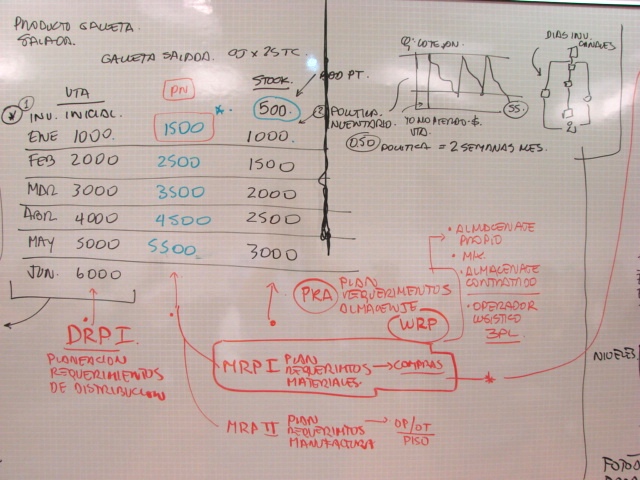 PRODUCTO GALLETA
SALADA.
GALLETA SALADA. OJ X 25 TC.
VTA
PN
STOCK.
1
INV. INICIAL.
*.
500.
ENE 1000.
1500
1000.
FEB 2000
2500
1500
MAR 3000
3500
2000
ABR 4000
4500
2500
MAY 5000
5500
3000
JUN. 6000
2
POLITICA
INVENTARIO.
Q: LOTE PN.
SS.
YO NO MERADO $.
VTA.
0.50
POLITICA = 2 SEMANAS MES.
DIAS INV.
CANALES
DRP I.
PLANEACION
REQUERIMIENTOS
DE DISTRIBUCION
PRA
PLAN
REQUERIMIENTOS
ALMACENAJE
WRP
• ALMACENAJE
PROPIO
• MIX
• ALMACENAJE
CONTRATADO
• OPERADOR
LOGISTICO
3PL
MRP I PLAN
REQUERIMTOS
MATERIALES.
COMPRAS
MRP II PLAN
REQUERIMTOS
MANUFACTURA
OP/OT
PISO
NIVELES